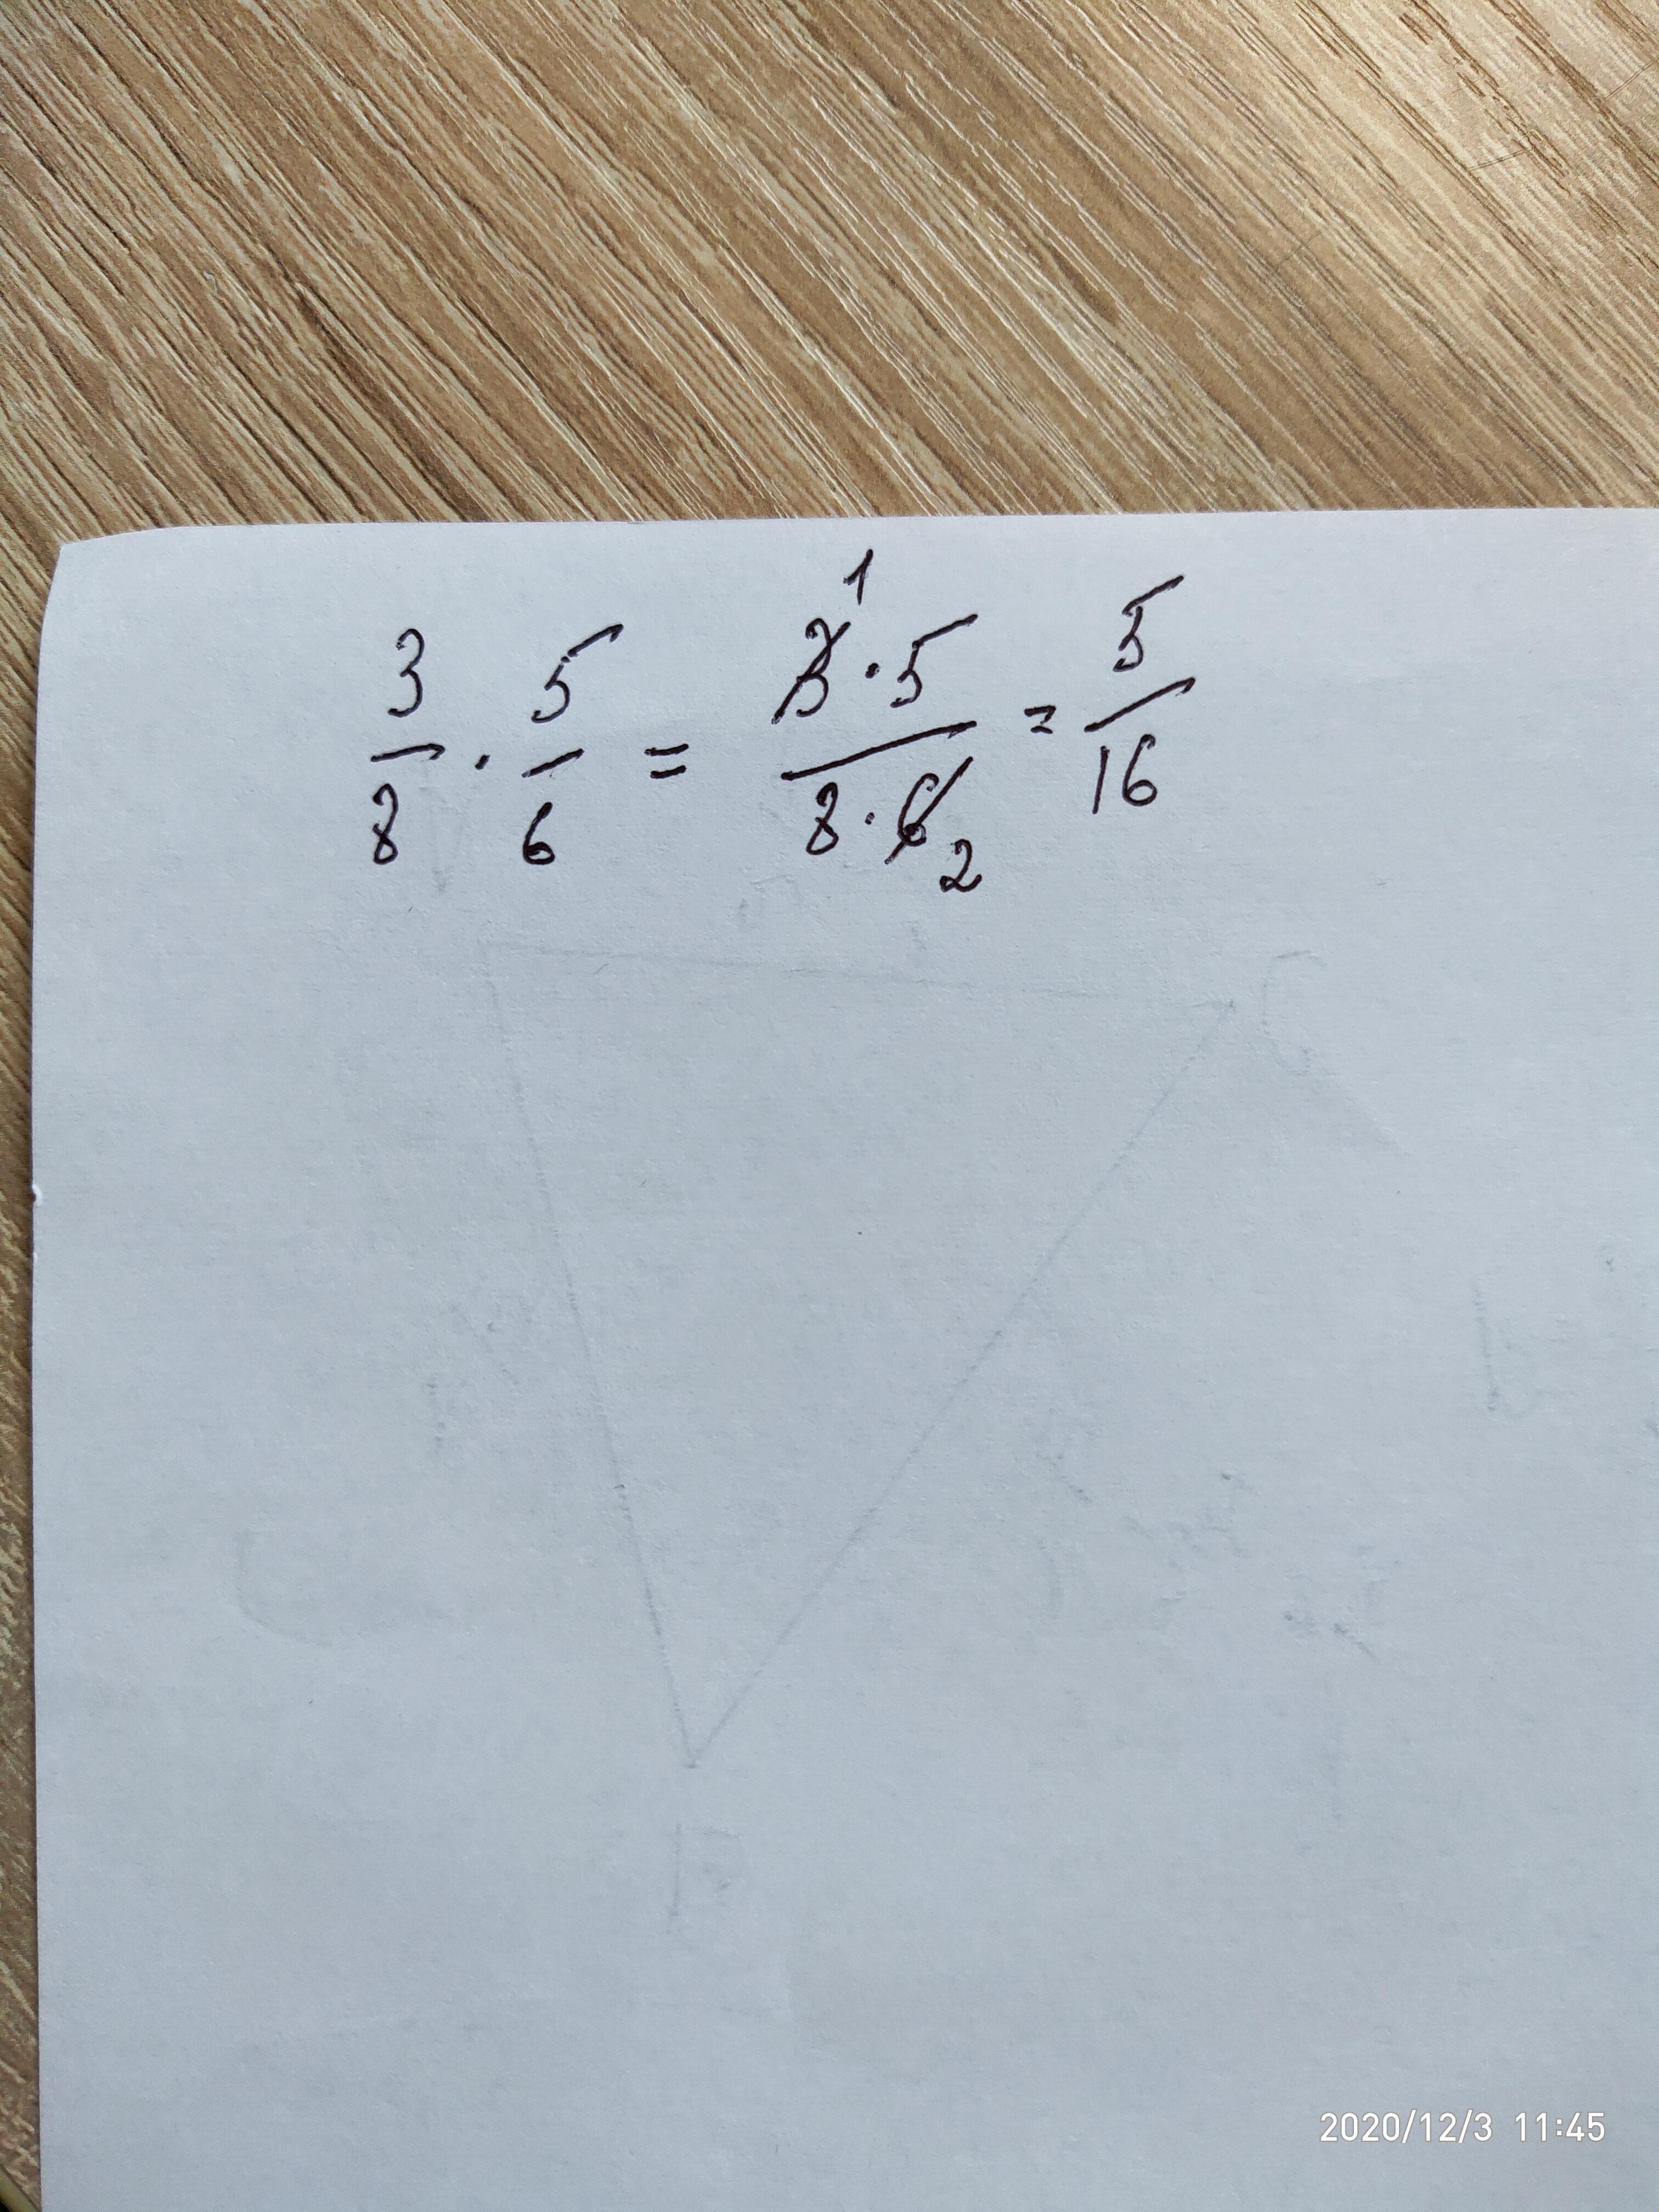 3/8 · 5/6 = 3 1 · 5 / 8 · 6 2 = 5/16
2020/12/3 11:45